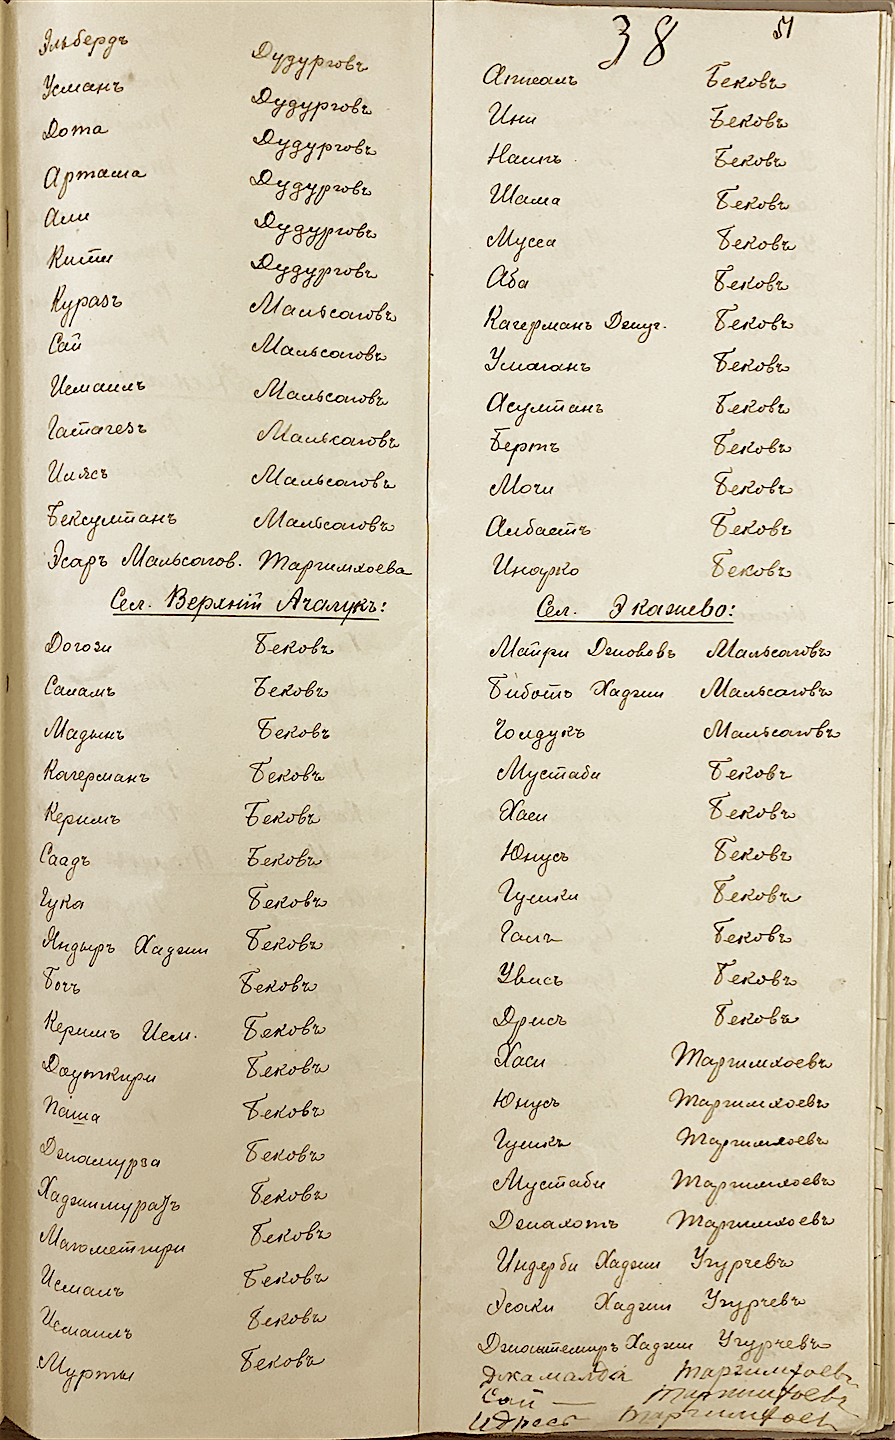 Эльбердъ Дудурговъ
Усманъ Дудурговъ
Дота Дудурговъ
Арташа Дудурговъ
Али Дудурговъ
Кити Дудурговъ
Куразъ Мальсаговъ
Сай Мальсаговъ
Исмаилъ Мальсаговъ
Гатагезъ Мальсаговъ
Илясъ Мальсаговъ
Бексултанъ Мальсаговъ
Эсаръ Мальсагов. Таргимхоева
Сел. Верхній Ачалукъ:
Догози Бековъ
Саламъ Бековъ
Мадынъ Бековъ
Кагерманъ Бековъ
Керимъ Бековъ
Саадъ Бековъ
Гука Бековъ
Яндыръ Хаджи Бековъ
Бочъ Бековъ
Керимъ Исм. Бековъ
Доуткири Бековъ
Паша Бековъ
Джамурза Бековъ
Хаджимуратъ Бековъ
Магометгири Бековъ
Исмаилъ Бековъ
Исмаилъ Бековъ
Мурты Бековъ
38 51
Бековъ
Ини Бековъ
Наипъ Бековъ
Шама Бековъ
Мусса Бековъ
Аба Бековъ
Кагерманъ Бековъ
Умаганъ Бековъ
Асултанъ Бековъ
Бертъ Бековъ
Мочи Бековъ
Албастъ Бековъ
Инарко Бековъ
Сел. Экажево:
Майри Мальсаговъ
Биботъ Хаджи Мальсаговъ
Голдукъ Мальсаговъ
Мустаби Бековъ
Хаси Бековъ
Юнусъ Бековъ
Гушки Бековъ
Бековъ
Увисъ Бековъ
Дрисъ Бековъ
Хаси Таргимхоевъ
Юнусъ Таргимхоевъ
Гушкъ Таргимхоевъ
Мустаби Таргимхоевъ
Джахотъ Таргимхоевъ
Индерби Хаджи Угурчевъ
Эсаки Хаджи Угурчевъ
Джантемиръ Хаджи Угурчевъ
Джамалда Таргимхоевъ
Сай — Таргимхоевъ
Идрсъ Таргимхоевъ